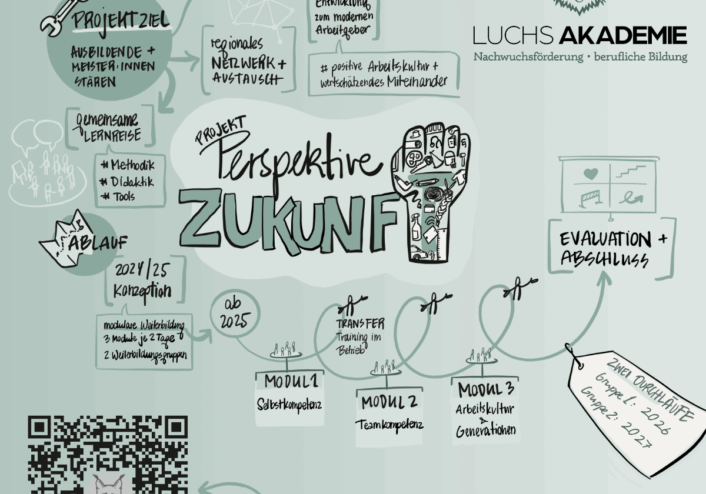 PROJEKTZIEL
AUSBILDENDE +
MEISTER:INNEN
STÄREN
regionales
NETZWERK +
AUSTAUSCH
Entwicklung
zum modernen
Arbeitgeber
# positive Arbeitskultur +
wertschätzendes Miteinander
LUCHS AKADEMIE
Nachwuchsförderung • berufliche Bildung
gemeinsame
LERNREISE
# Methodik
# Didaktik
# Tools
PROJEKT
Perspektive
ZUKUNFT
ABLAUF
2024/25
Konzeption
modulare Weiterbildung
3 Module je 2 Tage
2 Weiterbildungsgruppen
ab
2025
TRANSFER
Training im
Betrieb
MODUL 1
Selbstkompetenz
MODUL 2
Teamkompetenz
MODUL 3
Arbeitskultur
&
Generationen
EVALUATION +
ABSCHLUSS
ZWEI DURCHLÄUFE
Gruppe 1: 2026
Gruppe 2: 2027